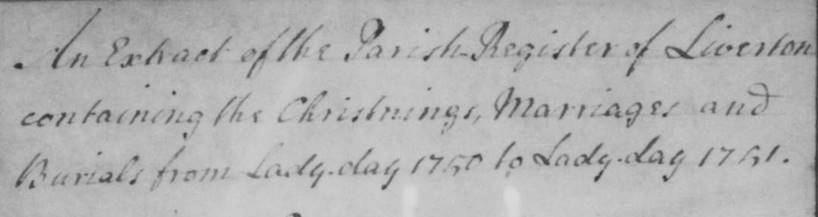 An Extract of the Parish Register of Liverton
containing the Christnings, Marriages and
Burials from Lady-day 1750 to Lady-day 1751.